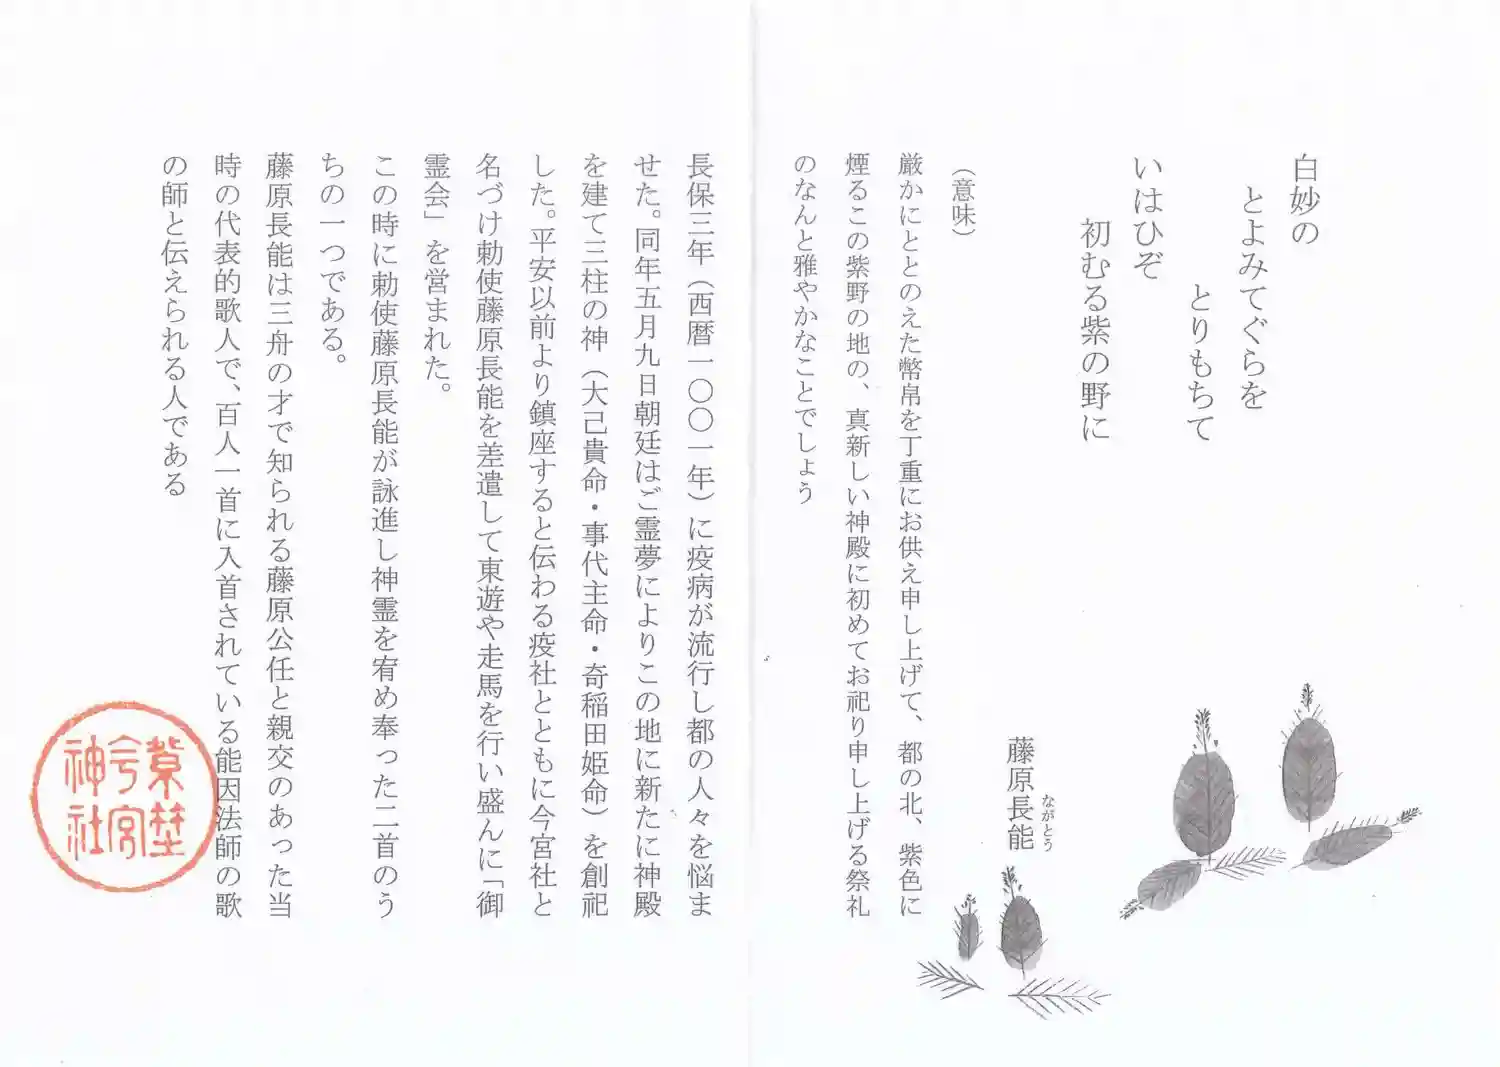 白妙の
とよみてぐらを
とりもちて
いはひぞ
初むる紫の野に
藤原長能
ながとう
（意味）
厳かにととのえた幣帛を丁重にお供え申し上げて、都の北、紫色に
煙るこの紫野の地の、真新しい神殿に初めてお祀り申し上げる祭礼
のなんと雅やかなことでしょう
長保三年（西暦一〇〇一年）に疫病が流行し都の人々を悩ま
せた。同年五月九日朝廷はご霊夢によりこの地に新たに神殿
を建て三柱の神（大己貴命・事代主命・奇稲田姫命）を創祀
した。平安以前より鎮座すると伝わる疫社とともに今宮社と
名づけ勅使藤原長能を差遣して東遊や走馬を行い盛んに「御
霊会」を営まれた。
この時に勅使藤原長能が詠進し神霊を宥め奉った二首のう
ちの一つである。
藤原長能は三舟の才で知られる藤原公任と親交のあった当
時の代表的歌人で、百人一首に入首されている能因法師の歌
の師と伝えられる人である
紫埜
今宮
神社